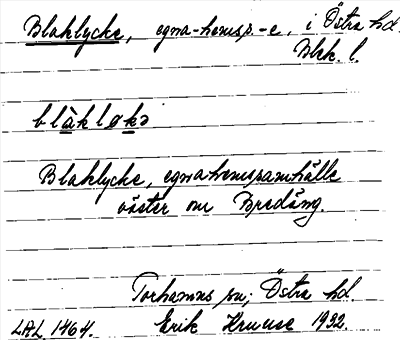 Blaklycke, egna-hemsp.-e, i Östra hd.
Blek. l.
blàkløkə
Blaklycke, egnahemssamhälle
väster om Bredäng.
Torhamns sn; Östra hd.
LAL 1464. Erik Kruuse 1932.